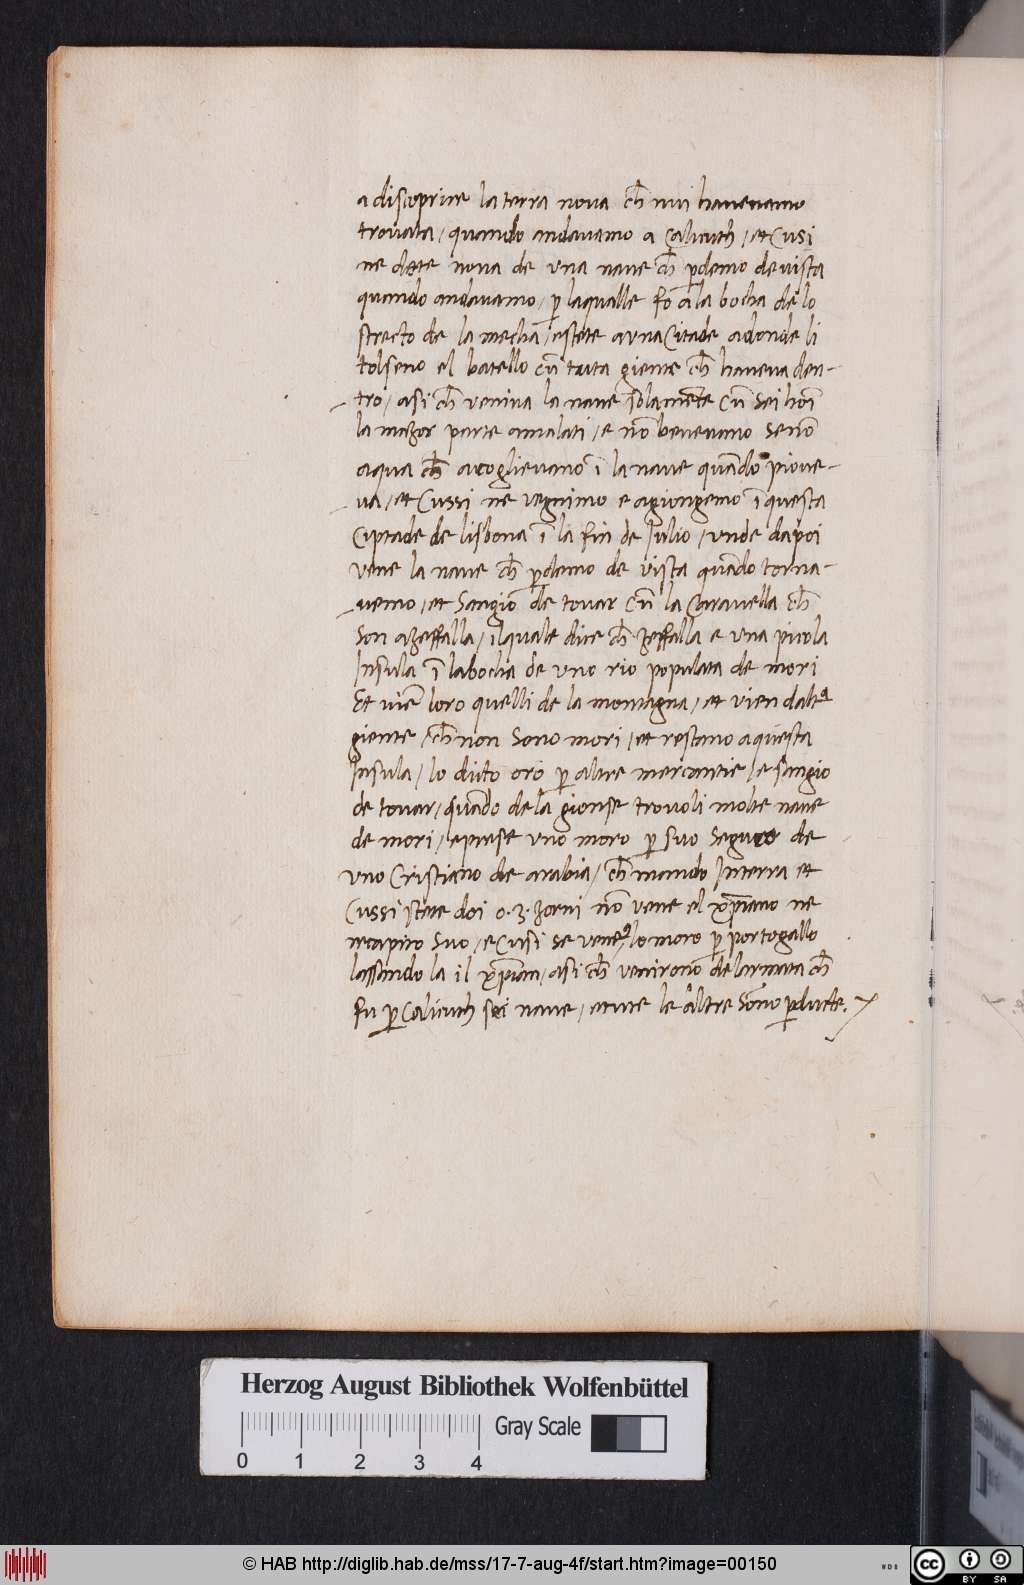 a discoprire la terra nova ch̅ nui havevamo
trovata / quando andavamo a Calicuth / et Cusi
ne dete nova de una nave ch̅ p̱demo de vista
quando andavamo / p̱ laqualle fo a la bocha de lo
strecto de la mecha / estete a una Citade adonde li
tolseno el batello cu̅ tuta giente ch̅ haveva den-
tro / asi ch̅ veniva la nave solame̅te Cu̅ sei ho̅i
la mazor parte amalati / e no̅ bevevano seno̅
aqua ch̅ acoglievano i̅ la nave qua̅do piove-
va / et Cussi ne vegnimo e agiongemo i̅ questa
Ciptade de lisbona i̅ la fin de Julio / unde dapoi
vene la nave ch̅ p̱demo de vista qua̅do torna-
vemo / et Sangio de tovar cu̅ la Caravella ch̅
Son a zeffalla / ilquale dice ch̅ zeffalla e una picola
Insula i̅ la bocha de uno rio populata de mori
Et vie̅ loro quelli de la montagna / et vien daltra
giente / ch̅ non Sono mori / et restano a questa
Insula / lo dicto oro p̱ altre mercantie / e sangio
de tovar / qua̅do de la gionse trovoli molte nave
de mori / e prese uno moro p̱ suo Seguro de
uno Cristiano de arabia / ch̅ mando Interra et
Cussi stete doi o .3. zorni no̅ vene el xp̅iano ne
recapito Suo / e Cusi se vene / lo moro p̱ portogallo
lassando la il xp̅ian / asi ch̅ venirono de larmata ch̅
fu p̱ Calicuth sei nave / et tute le altre Sono p̱dute.
Herzog August Bibliothek Wolfenbüttel
Gray Scale
0 1 2 3 4
© HAB http://diglib.hab.de/mss/17-7-aug-4f/start.htm?image=00150
WDB
cc BY SA